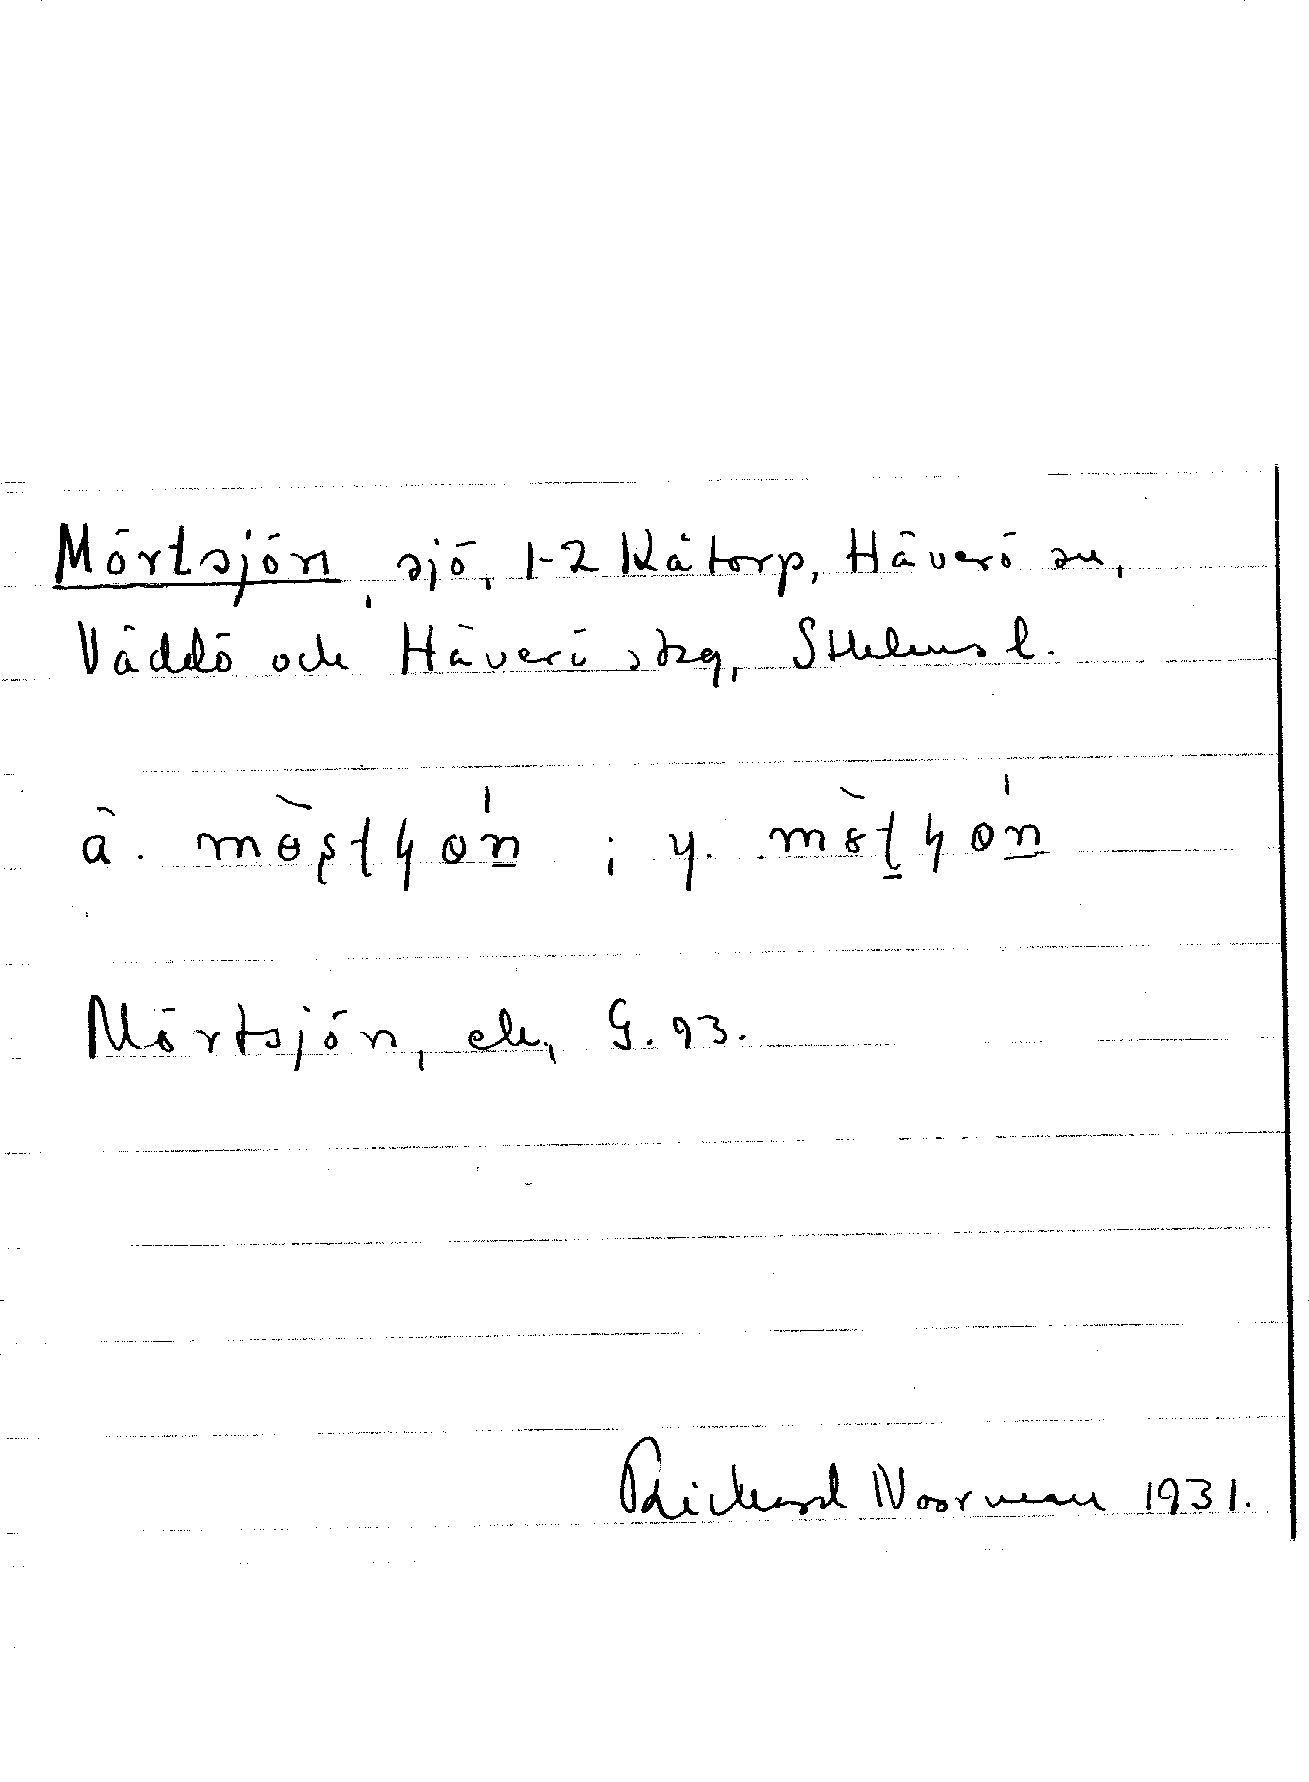 Mörtsjön, sjö, 1-2 Kåtorp, Häverö sn,
Väddö och Häverö skg, Sthlms l.
ä. ; y.
Mörtsjön, ek, G. 93.
Rickard Noorman 1931.